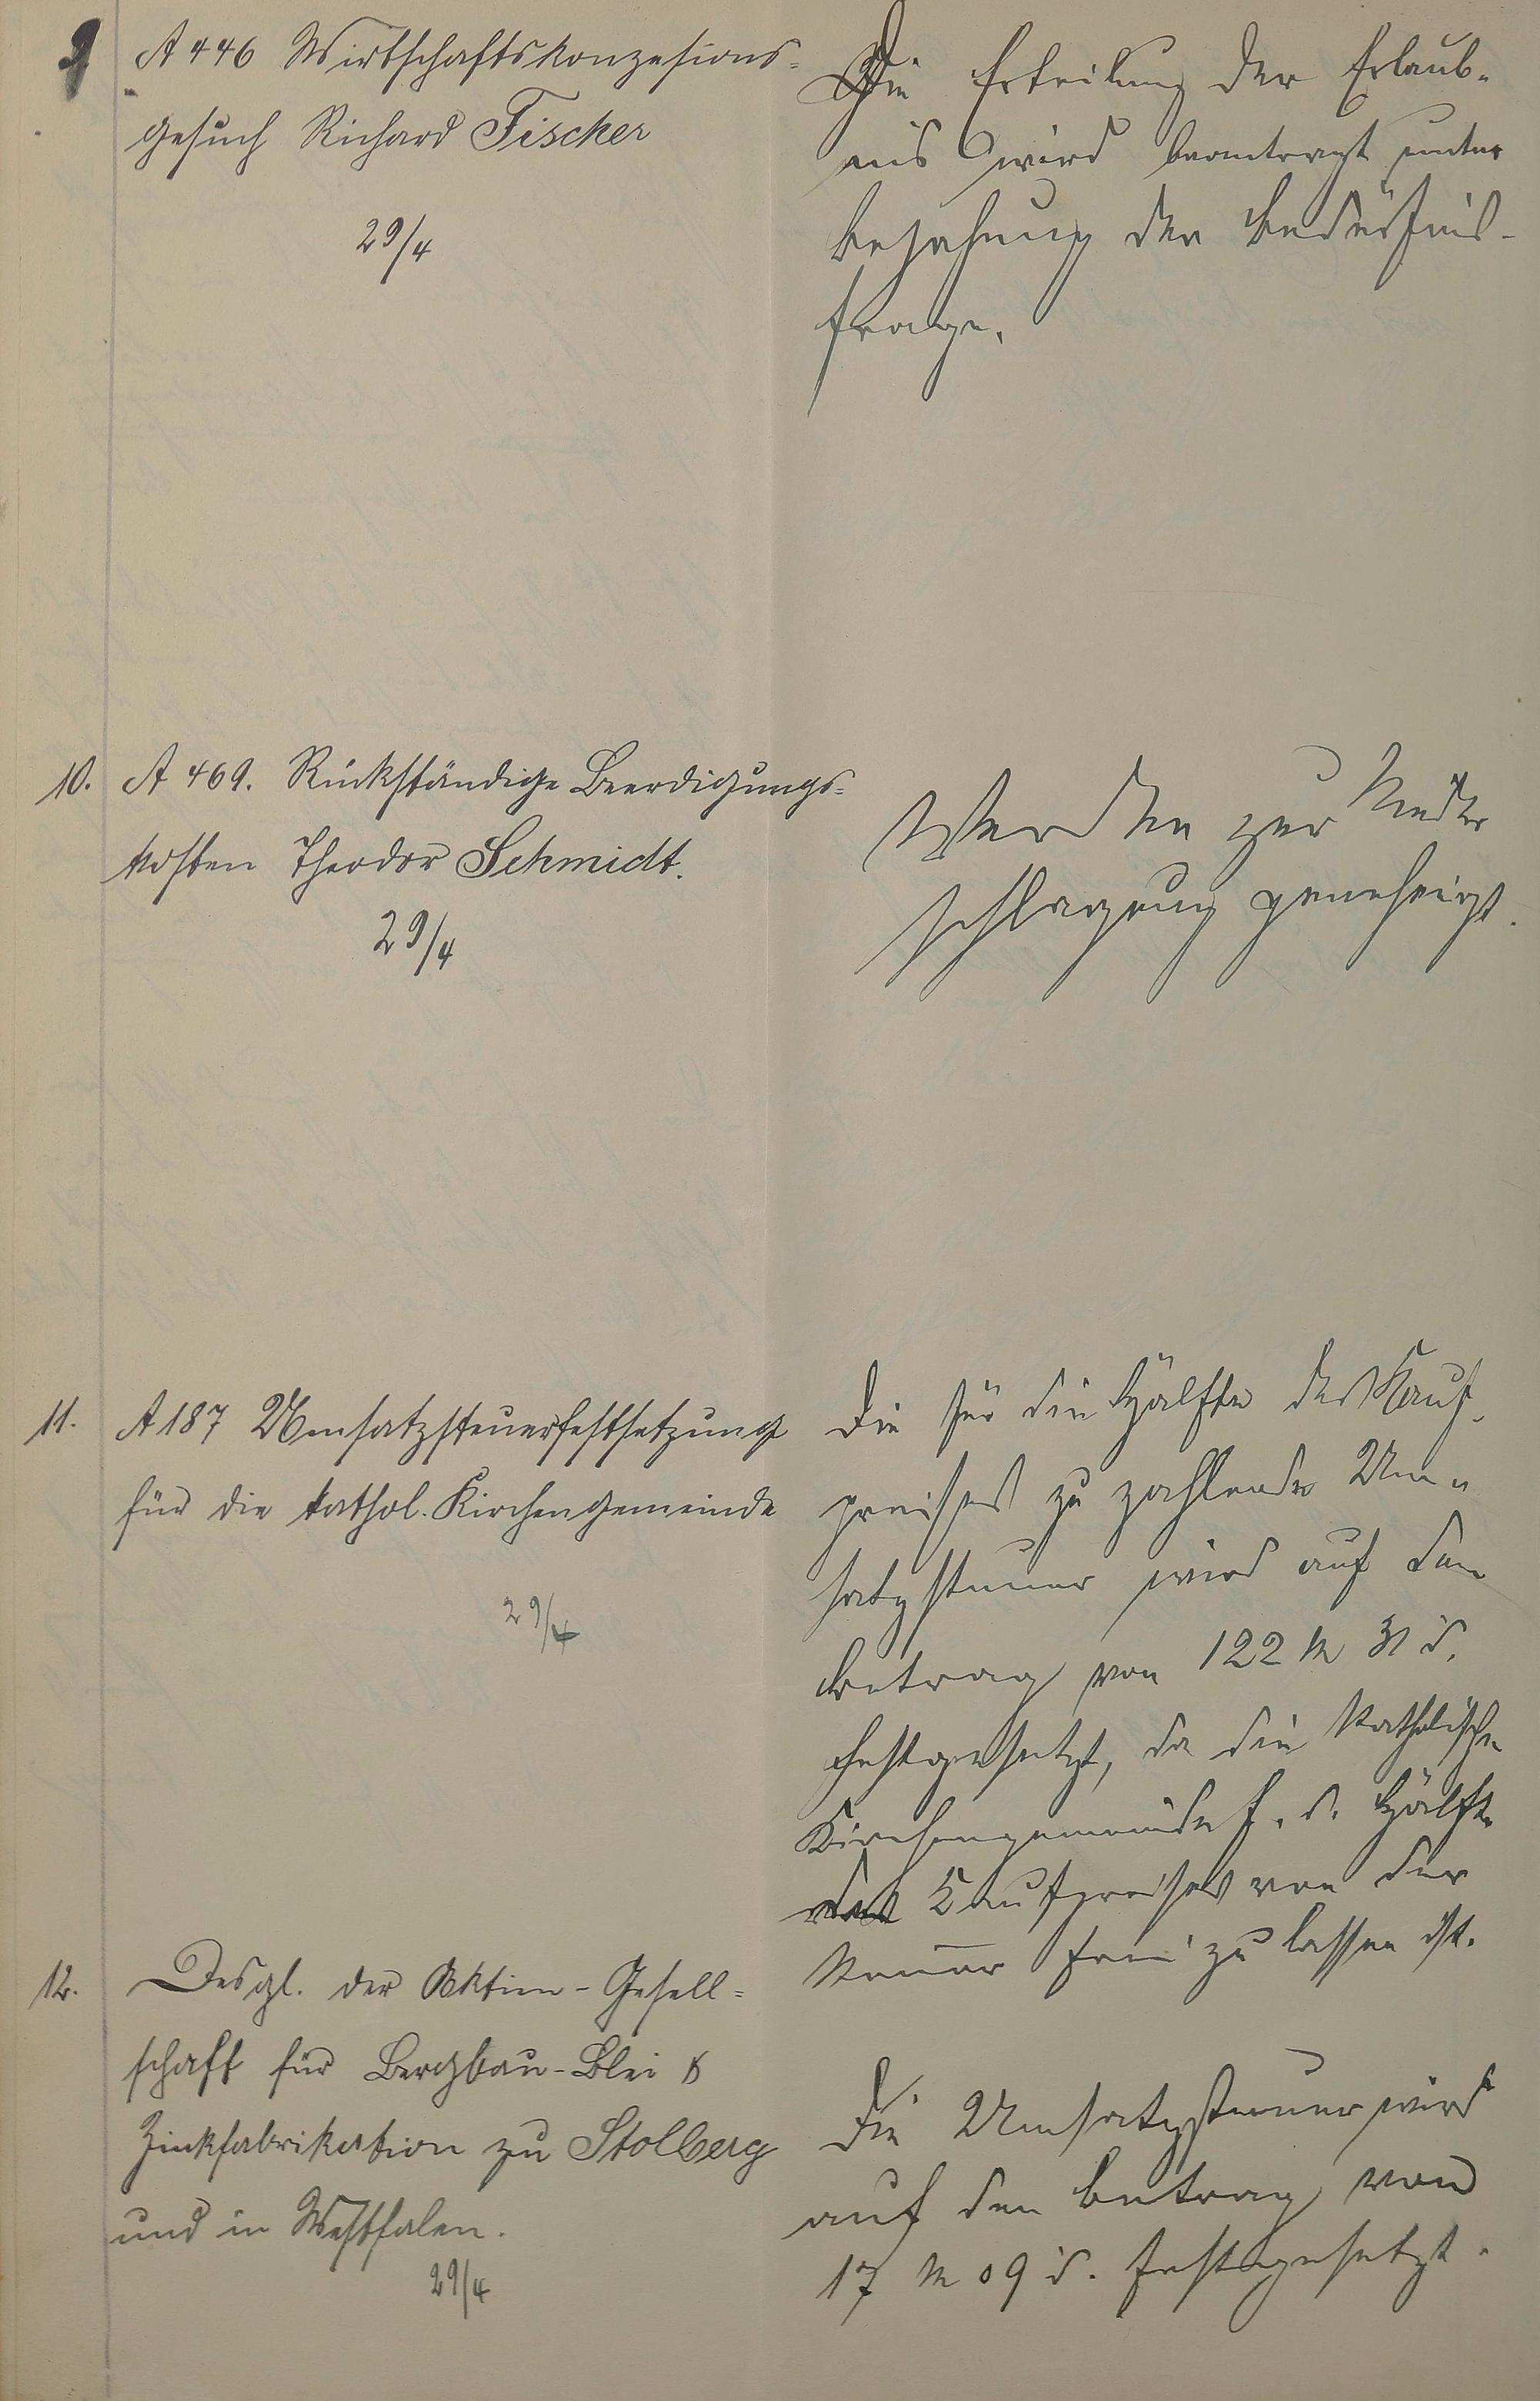 9
A 446 Wirtschaftskonzesions-
gesuch Richard Fischer
29/4
Die Erteilung der Erlaub-
nis wird beantragt unter
Bejahung der Bedürfnis-
frage.
10. A 469. Rückständige Beerdigungs-
kosten Theodor Schmidt.
29/4
Werden zur Nieder
schlagung genehmigt.
11. A 187 Umsatzsteuerfestsetzung
für die kathol. Kirchengemeinde
29/4
Die für die Hälfte des Kauf-
preises zu zahlende Um-
satzsteuer wird auf den
Betrag von 122 M
festgesetzt, da die katholische
Kirchengemeinde f. d. Hälfte
des Kaufpreises von der
frei zu lassen ist.
12. Desgl. der Aktien-Gesell-
schaft für Bergbau-Blei &
Zinkfabrikation zu Stolberg
und in Westfalen.
29/4
Die Umsatzsteuer wird
auf den Betrag von
17 M 09 d. festgesetzt.